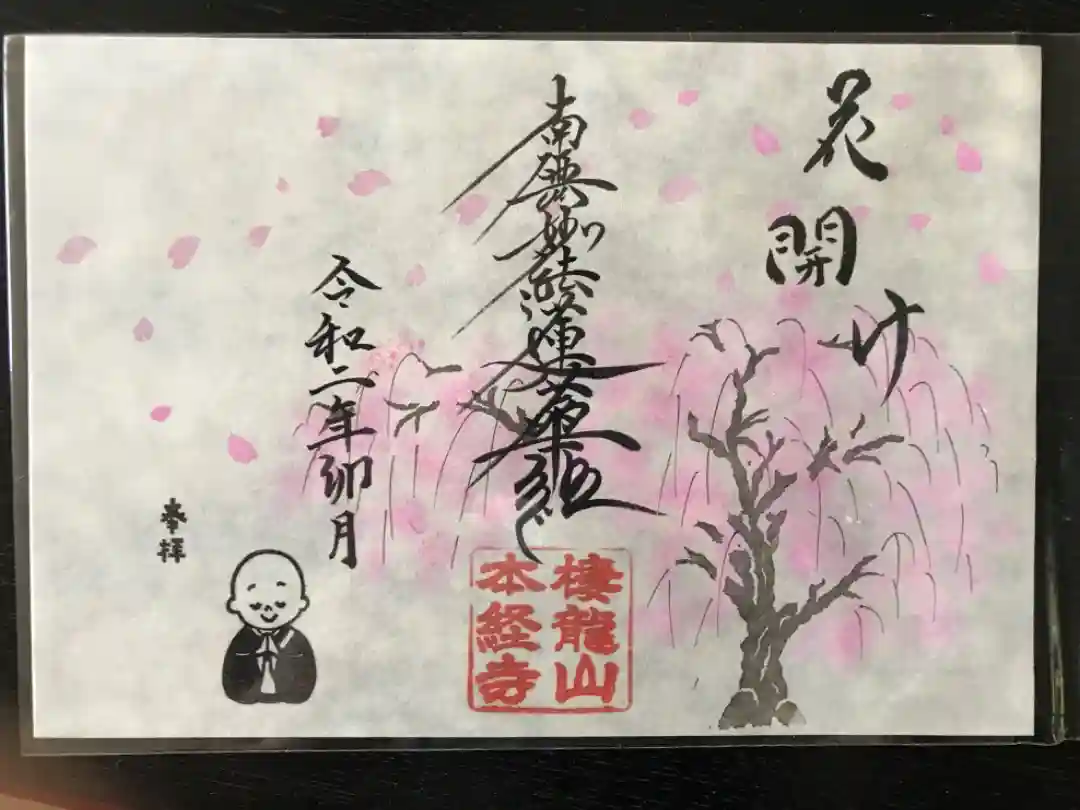 花開け
南無妙法蓮華経
令和二年卯月
奉拝
棲龍山
本経寺